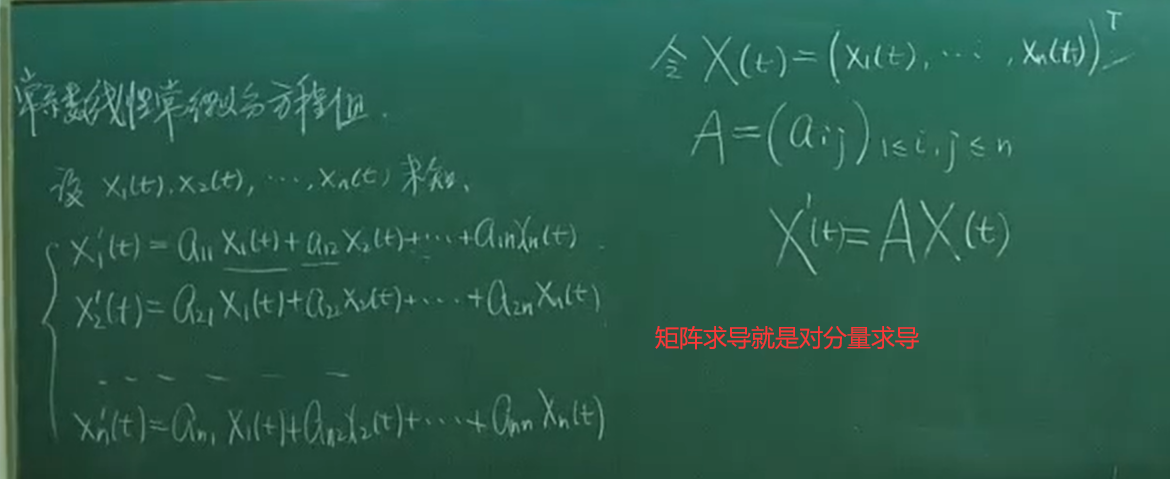 常系数线性常微分方程组.
设 x₁(t), x₂(t), ⋯, xₙ(t) 未知.
{ x₁'(t) = a₁₁ x₁(t) + a₁₂ x₂(t) + ⋯ + a₁ₙ xₙ(t)
x₂'(t) = a₂₁ x₁(t) + a₂₂ x₂(t) + ⋯ + a₂ₙ xₙ(t)
- - - - - -
xₙ'(t) = aₙ₁ x₁(t) + aₙ₂ x₂(t) + ⋯ + aₙₙ xₙ(t)
令 X(t) = (x₁(t), ⋯, xₙ(t))ᵀ
A = (aᵢⱼ) 1≤i,j≤n
X'(t) = AX(t)
矩阵求导就是对分量求导